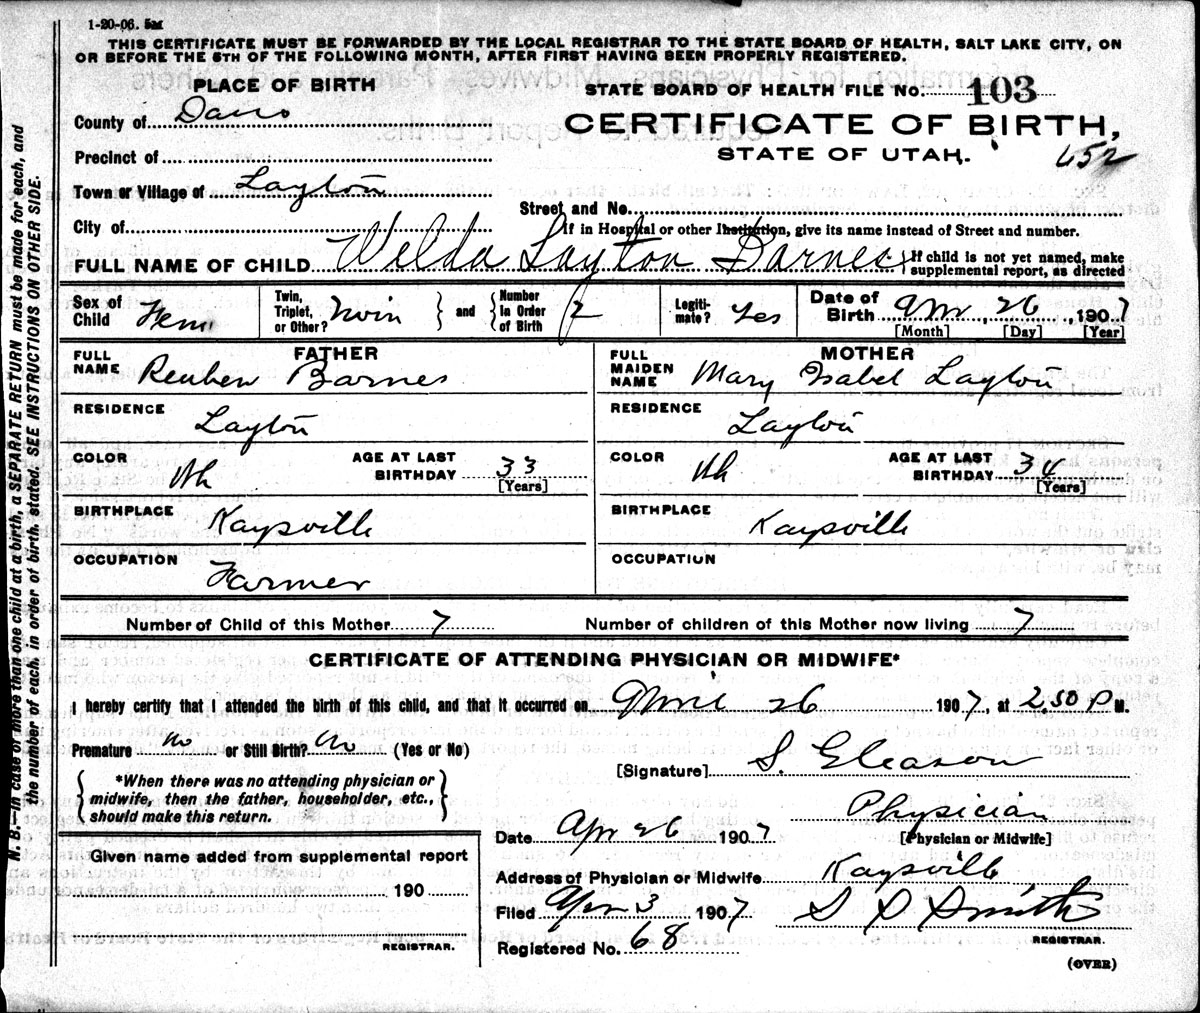 1-20-06. 5M
THIS CERTIFICATE MUST BE FORWARDED BY THE LOCAL REGISTRAR TO THE STATE BOARD OF HEALTH, SALT LAKE CITY, ON
OR BEFORE THE 5TH OF THE FOLLOWING MONTH, AFTER FIRST HAVING BEEN PROPERLY REGISTERED.
PLACE OF BIRTH
STATE BOARD OF HEALTH FILE No. 103
County of Davis
CERTIFICATE OF BIRTH,
Precinct of
STATE OF UTAH. 652
Town or Village of Layton
Street and No.
City of
If in Hospital or other Institution, give its name instead of Street and number.
FULL NAME OF CHILD Welda Layton Barnes { If child is not yet named, make
supplemental report, as directed
Sex of Child Fem
Twin, Triplet, or Other? Twin } and { Number in Order of Birth 2
Legiti-mate? Yes
Date of Birth Apr, 26, 1907
[Month] [Day] [Year]
FATHER
FULL NAME Reuben Barnes
RESIDENCE Layton
COLOR Wh
AGE AT LAST BIRTHDAY 33
[Years]
BIRTHPLACE Kaysville
OCCUPATION Farmer
MOTHER
FULL MAIDEN NAME Mary Isabel Layton
RESIDENCE Layton
COLOR Wh
AGE AT LAST BIRTHDAY 34
[Years]
BIRTHPLACE Kaysville
OCCUPATION
Number of Child of this Mother 7 Number of children of this Mother now living 7
CERTIFICATE OF ATTENDING PHYSICIAN OR MIDWIFE*
I hereby certify that I attended the birth of this child, and that it occurred on April 26 1907, at 2.50 P M.
Premature no or Still Birth? no (Yes or No)
[Signature] S. Gleason
{ *When there was no attending physician or
midwife, then the father, householder, etc.,
should make this return. }
Physician
[Physician or Midwife]
Date Apr 26 1907
Given name added from supplemental report
190
REGISTRAR.
Address of Physician or Midwife Kaysville
Filed 3 1907 Smith
REGISTRAR.
Registered No. 68
(OVER)
N. B.—In case of more than one child at a birth, a SEPARATE RETURN must be made for each, and
the number of each, in order of birth, stated. SEE INSTRUCTIONS ON OTHER SIDE.